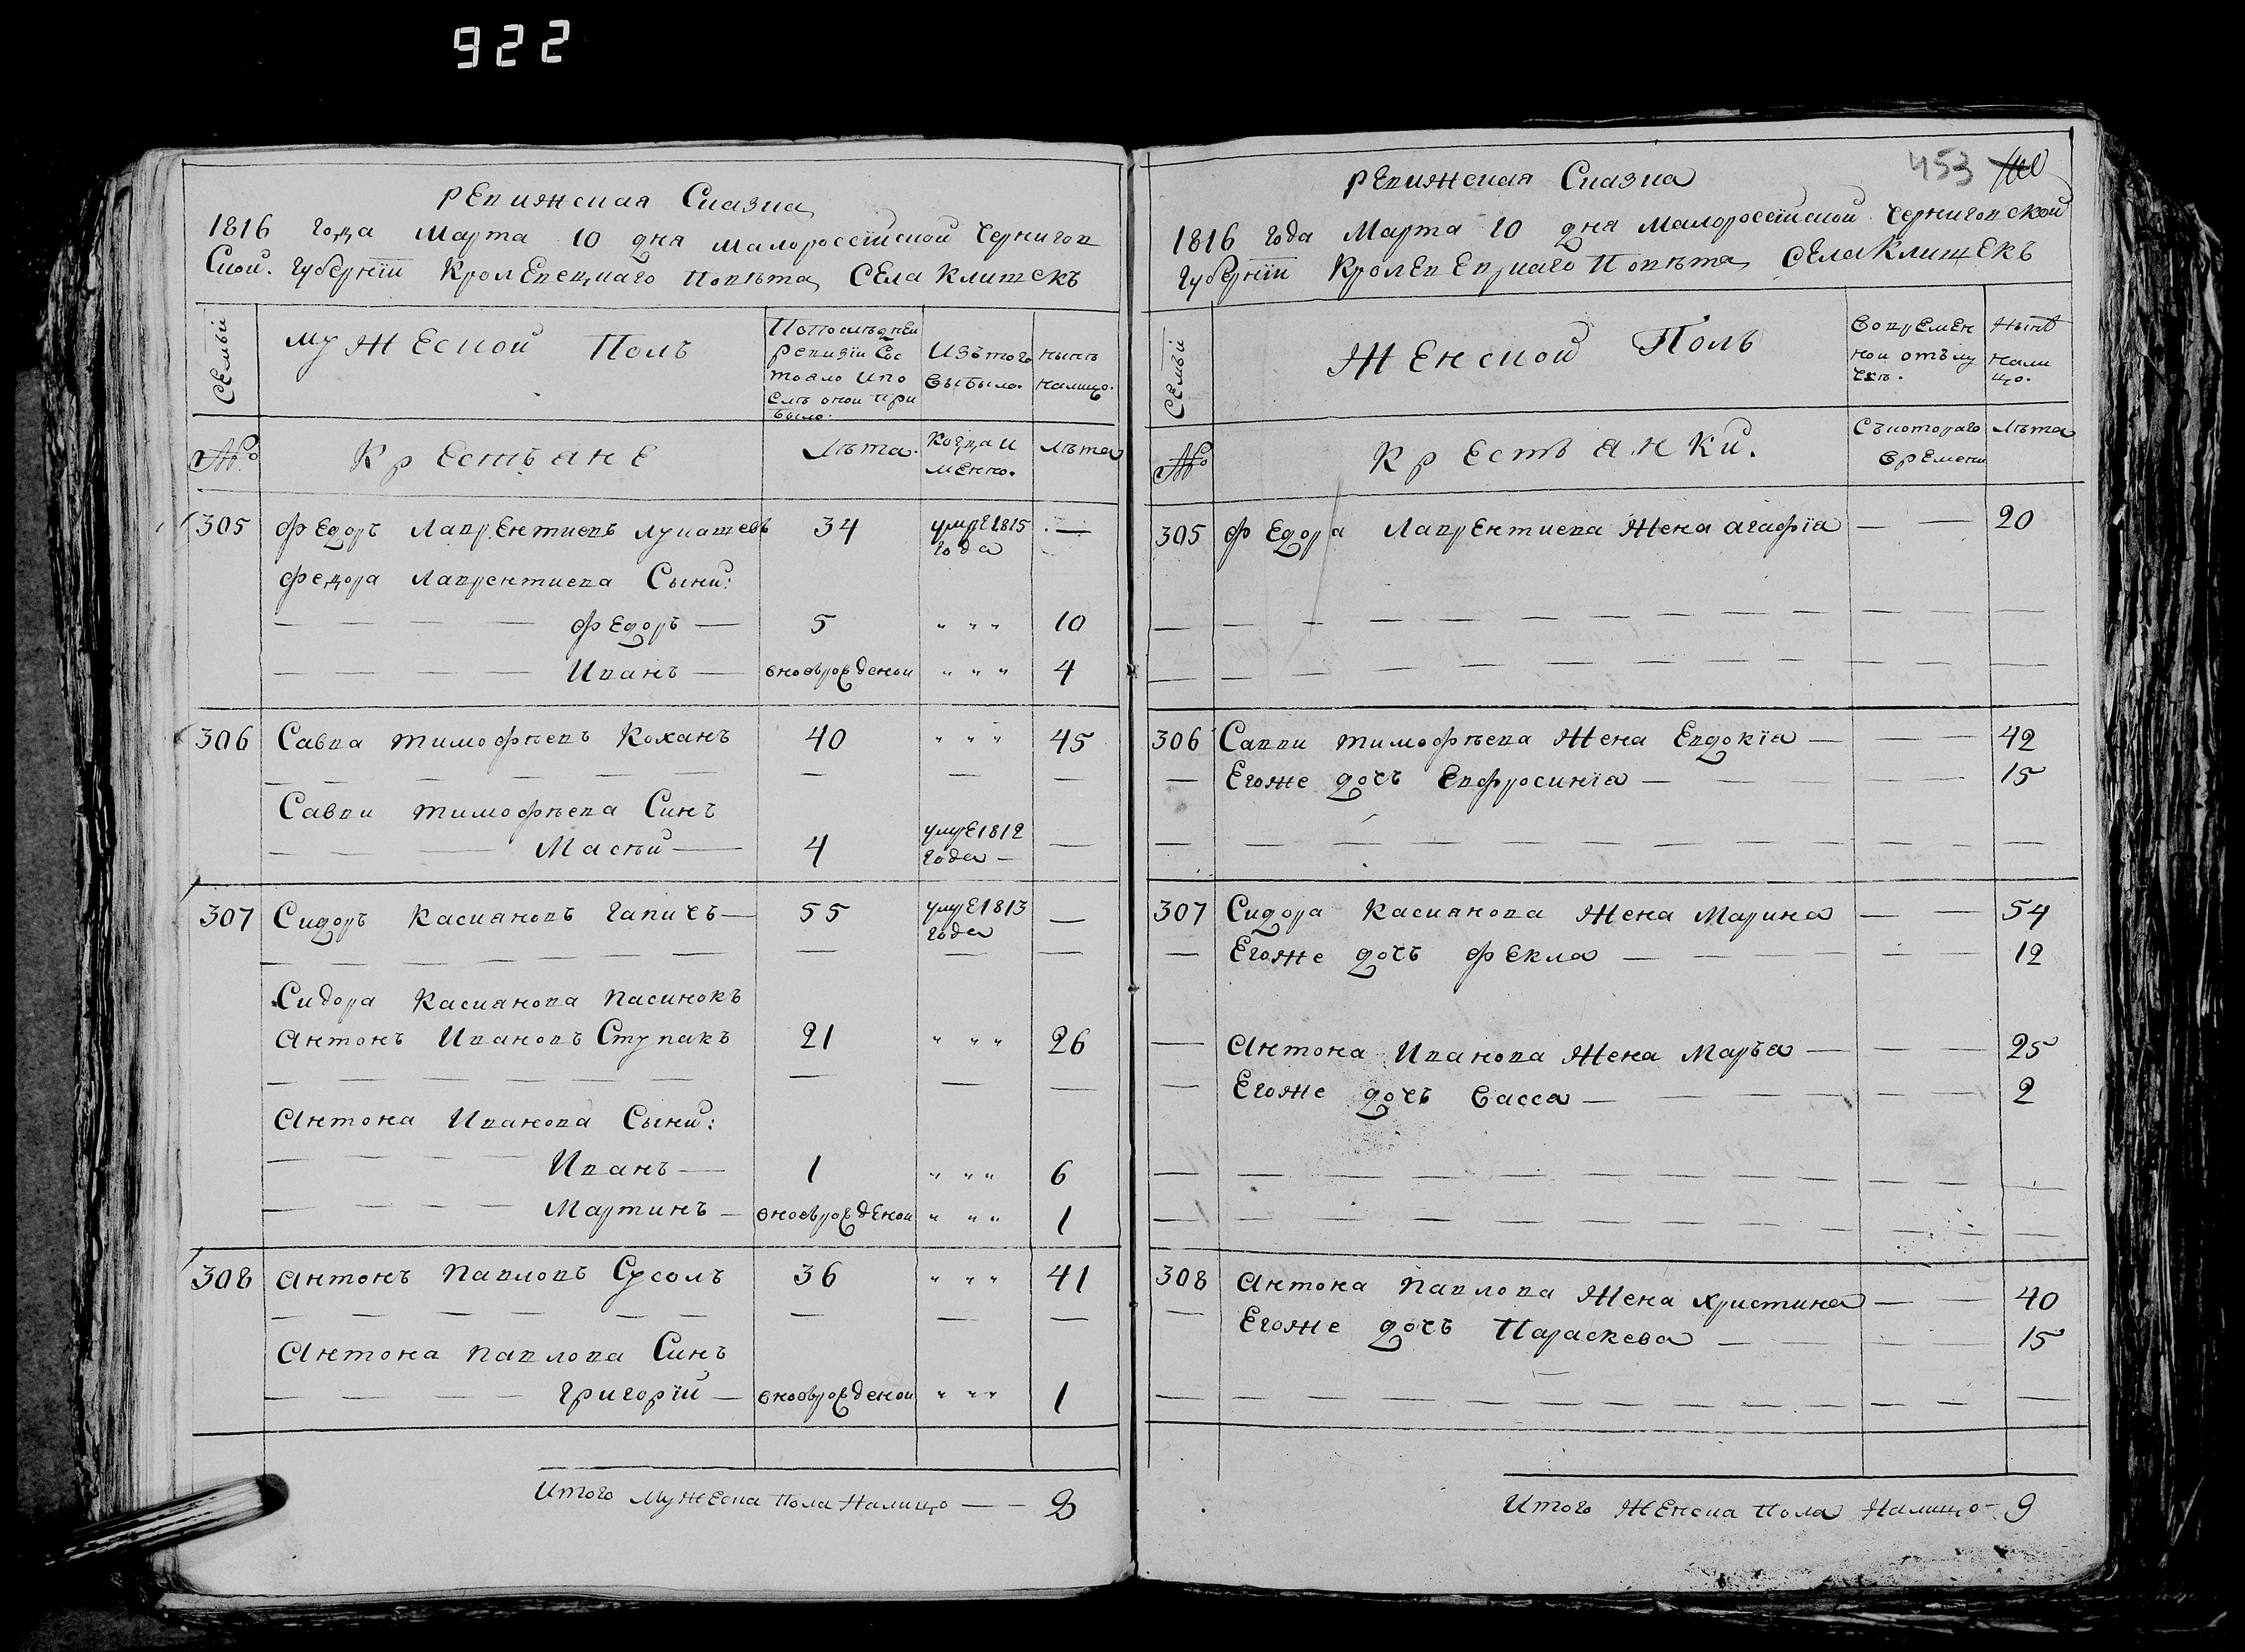 922
Ревижская Сказка
1816 года Марта 10 дня Малоросеїйской Чернигов
Ской. Губернїи Кролевецкаго Повѣта, Села Клишекъ
Семьи
Мужеской Полъ
Попослѣдней
ревизїи Сос
тояло ипо
слѣ оной при
было.
Изътого
выбыло.
нынѣ
налицо.
№
Крестьяне
Лѣта.
Когда и
менно.
лѣта
305 Федоръ Лаврентиевъ Лукашевъ 34 умре 1815 года —
Федора Лаврентиева Сыни:
Федоръ — 5 " " " 10
Иванъ — вновьрожденой " " " 4
306 Савва Тимофѣевъ Коханъ 40 " " " 45
Савви Тимофѣева Синъ
Масѣй — 4 умре 1812 года — —
307 Сидоръ Касияновъ Гапичъ — 55 умре 1813 года —
Сидора Касиянова пасинокъ
Антонъ Ивановъ Ступакъ 21 " " " 26
Антона Иванова Сыни:
Иванъ — 1 " " " 6
Мартинъ — вновьрожденой " " " 1
308 Антонъ Павловъ Сусолъ 36 " " " 41
Антона Павлова Синъ
Григорїй — вновьрожденой " " " 1
Итого Мужеска Пола Налицо — 8
453
Ревижская Сказка
1816 года Марта 10 дня Малоросеїйской Черниговской
Губернїи Кролевецкаго Повѣта, Села Клишекъ
Семьи
Женской Полъ
Вовремен
ной отълу
чкѣ.
Нынѣ
нали
цо.
№
Крестьянки.
Съкотораго
времени
Лѣта
305 Федора Лаврентиева Жена Агафїа — — 20
306 Савви Тимофѣева Жена Евдокїа — — — 42
— Егоже дочъ Евфросинїа — — — 15
307 Сидора Касиянова Жена Марина — — 54
— Егоже дочъ Фекла — — — 12
— Антона Иванова Жена Маръа — — — 25
— Егоже дочъ Васса — — — 2
308 Антона Павлова Жена Христина — — 40
— Егоже дочъ Параскева — — — 15
Итого Женска Пола Налицо — 9